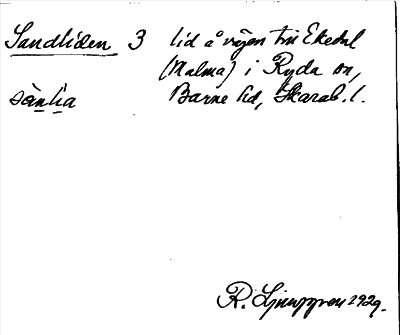 Sandliden 3 lid å vägen till Ekedal
(Malma) i Ryda sn,
sànlia Barne hd, Skarab. l.
R. Ljunggren 1929.